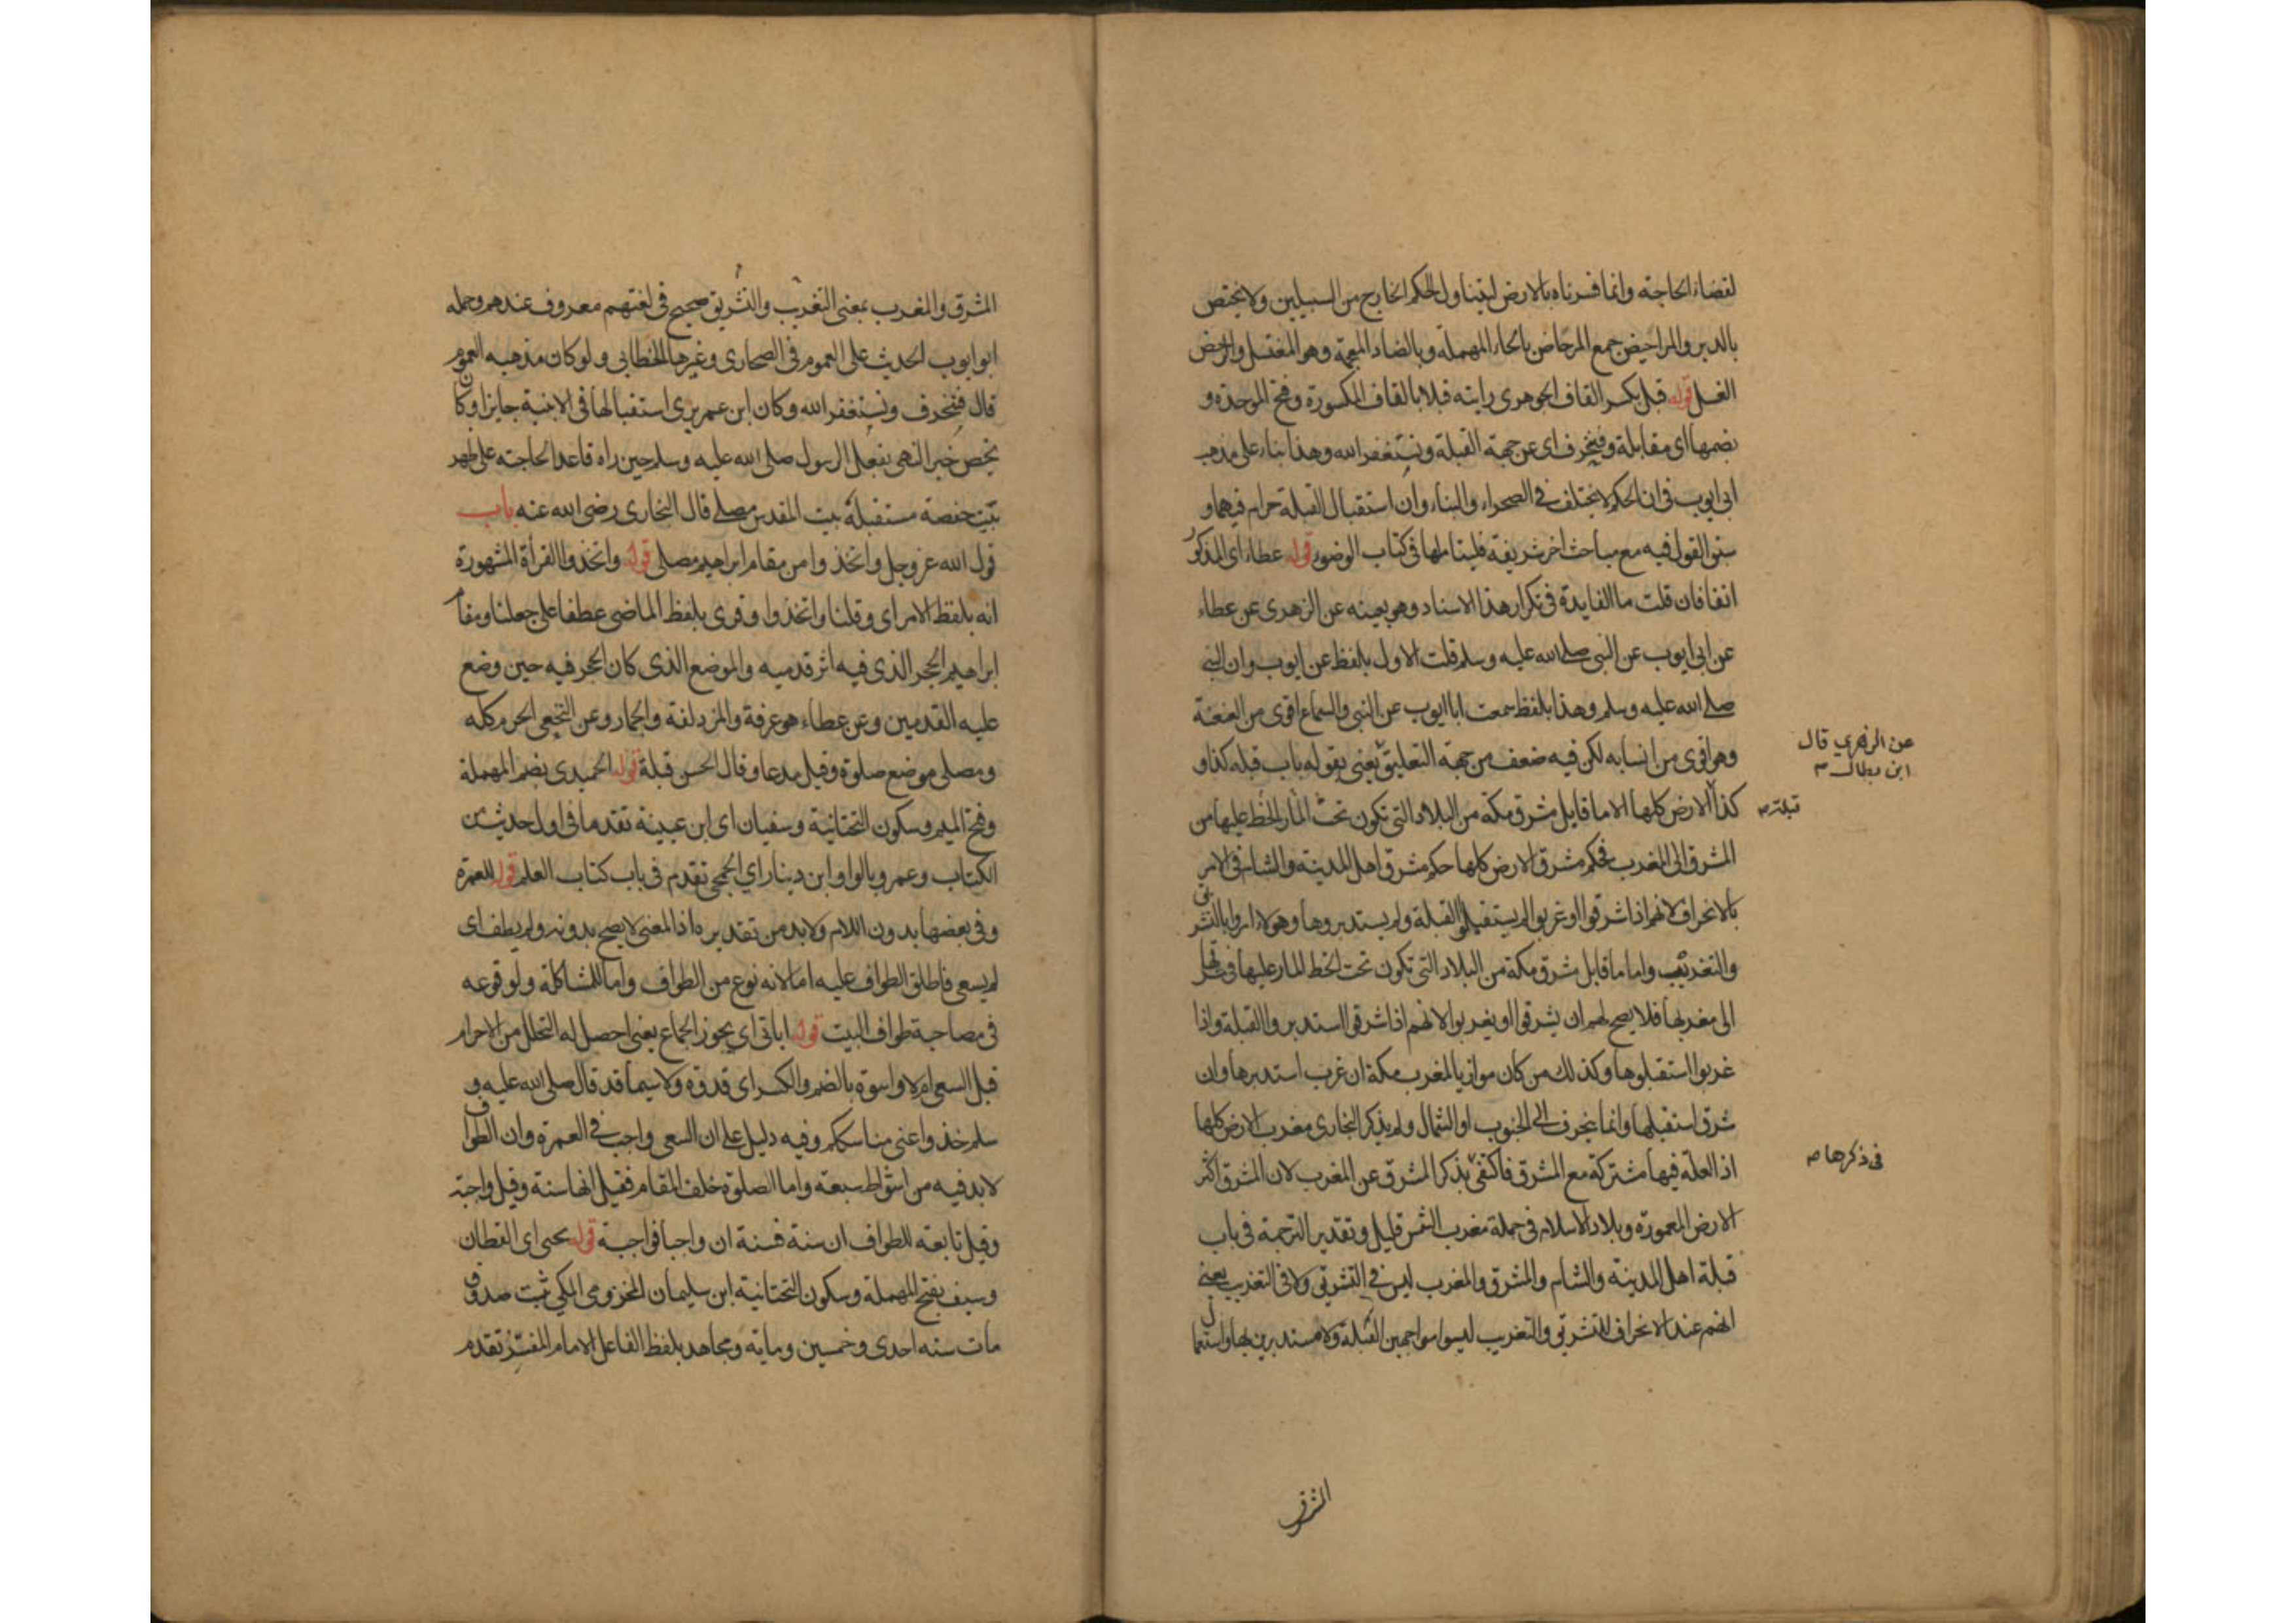 لقضاء الحاجة وانما فسرناه بالارض ليتناول الحكم الخارج من السبيلين ولا يختص
بالدبر والمراحيض جمع المرحاض بالحاء المهملة وبالضاد المعجمة وهو المغتسل والرحض
الغسل قوله قبل بكسر القاف الجوهرى رايته قبلا بالقاف المكسورة وفتح الموحدة و
بضمها اى مقابلة وفننحرف اى عن جهة القبلة ونستغفر الله وهذا بناء على مذهب
ابى ايوب فى ان الحكم لا يختلف فى الصحراء والبناء وان استقبال القبلة حرام فيهما و
سبق القول فيه مع مباحث اخر شريفة فليتاملها فى كتاب الوضوء قوله عطاء اى المذكور
انفا فان قلت ما الفايدة فى تكرار هذا الاسناد وهو بعينه عن الزهرى عن عطاء
عن ابى ايوب عن النبى صلى الله عليه وسلم قلت الاول بلفظ عن ايوب وان النبى
صلى الله عليه وسلم وهذا بلفظ سمعت ابا ايوب عن النبى والسماع اقوى من العنعنة
وهو اقوى من انسابه لكن فيه ضعف من جهة التعليق يعنى بقوله باب قبله كذا و
عن الزهري قال
ابن بطال م
كذا الارض كلها الا ما قابل مشرق مكة من البلاد التى تكون تحت المار الخط عليها من
قبلة م
المشرق الى المغرب فحكم مشرق الارض كلها حكم مشرق اهل المدينة والشام فى الامر
بالانحراف لانهم اذا شرقوا او غربوا لم يستقبلوا القبلة ولم يستدبروها وهولاء امروا بالتشريق
والتغريب واما ما قابل مشرق مكة من البلاد التى تكون تحت الخط المار عليها فى شرقها
الى مغربها فلا يصح لهم ان يشرقوا او يغربوا لانهم اذا شرقوا استدبروا القبلة واذا
غربوا استقبلوها وكذلك من كان موازيا لمغرب مكة ان غرب استدبرها وان
شرق استقبلها وانما ينحرف الى الجنوب او الشمال ولم يذكر البخارى مغرب الارض كلها
اذ العلة فيها مشتركة مع المشرق فاكتفى بذكر المشرق عن المغرب لان المشرق اكثر
فى ذكرها م
الارض المعمورة وبلاد الاسلام فى جملة مغرب الشمس قليل وتقدير الترجمة فى باب
قبلة اهل المدينة والشام والمشرق والمغرب ليس فى التشريق ولا فى التغريب يعنى
انهم عند الانحراف للتشريق والتغريب ليسوا مواجهين القبلة ولا مستدبرين بها واستعمال
الشرق
المشرق والمغرب بمعنى التغريب والتشريق صحيح فى لغتهم معروف عندهم وحمله
ابو ايوب الحديث على العموم فى الصحارى وغيرها الخطابى ولو كان مذهبه العموم
قال فننحرف ونستغفر الله وكان ابن عمر يرى استقبالها فى الابنية جايزا وكان
يخص خبر النهى بفعل الرسول صلى الله عليه وسلم حين راه قاعدا لحاجته على ظهر
بيت حفصة مستقبلة بيت المقدس مصلى قال البخارى رضى الله عنه باب
قول الله عز وجل واتخذوا من مقام ابراهيم مصلى قوله واتخذوا القرأة المشهورة
انه بلفظ الامر اى وقلنا واتخذوا وقرى بلفظ الماضى عطفا على جعلنا ومقام
ابراهيم الحجر الذى فيه اثر قدميه والموضع الذى كان الحجر فيه حين وضع
عليه القدمين وعن عطاء هو عرفة والمزدلفة والجمار وعن النخعى الحرم كله
ومصلى موضع صلوة وقيل مدعا وقال الحسن قبلة قوله الحميدى بضم المهملة
وفتح الميم وسكون التحتانية وسفيان اى ابن عيينة تقدما فى اول حديث من
الكتاب وعمرو بالواو ابن دينار اي الجمحى تقدم فى باب كتاب العلم قوله للعمرة
وفى بعضها بدون اللام ولا بد من تقديره اذ المعنى لا يصح بدونه ولم يطف اى
لم يسعى فاطلق الطواف عليه اما لانه نوع من الطواف واما للمشاكلة ولوقوعه
فى مصاحبة طواف البيت قوله اياتى اى يجوز الجماع يعنى احصل له التحلل من الاحرام
قبل السعى ام لا واسوة بالضم والكسر اى قدوة ولا سيما قد قال صلى الله عليه و
سلم خذوا عنى مناسككم وفيه دليل على ان السعى واجب فى العمرة وان الطواف
لا بد فيه من اشواط سبعة واما الصلوة خلف المقام فقيل انها سنة وقيل واجبة
وقيل تابعة للطواف ان سنة فسنة ان واجبا فواجبة قوله يحيى اى القطان
وسيف بفتح المهملة وسكون التحتانية ابن سليمان المخزومى المكى ثبت صدوق
مات سنه احدى وخمسين وماية ومجاهد بلفظ الفاعل الامام المفسر تقدم